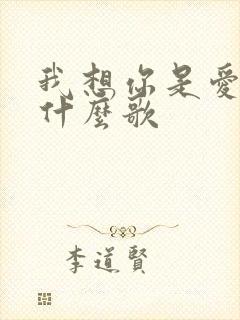 我想你是愛
什麼歌
李道賢